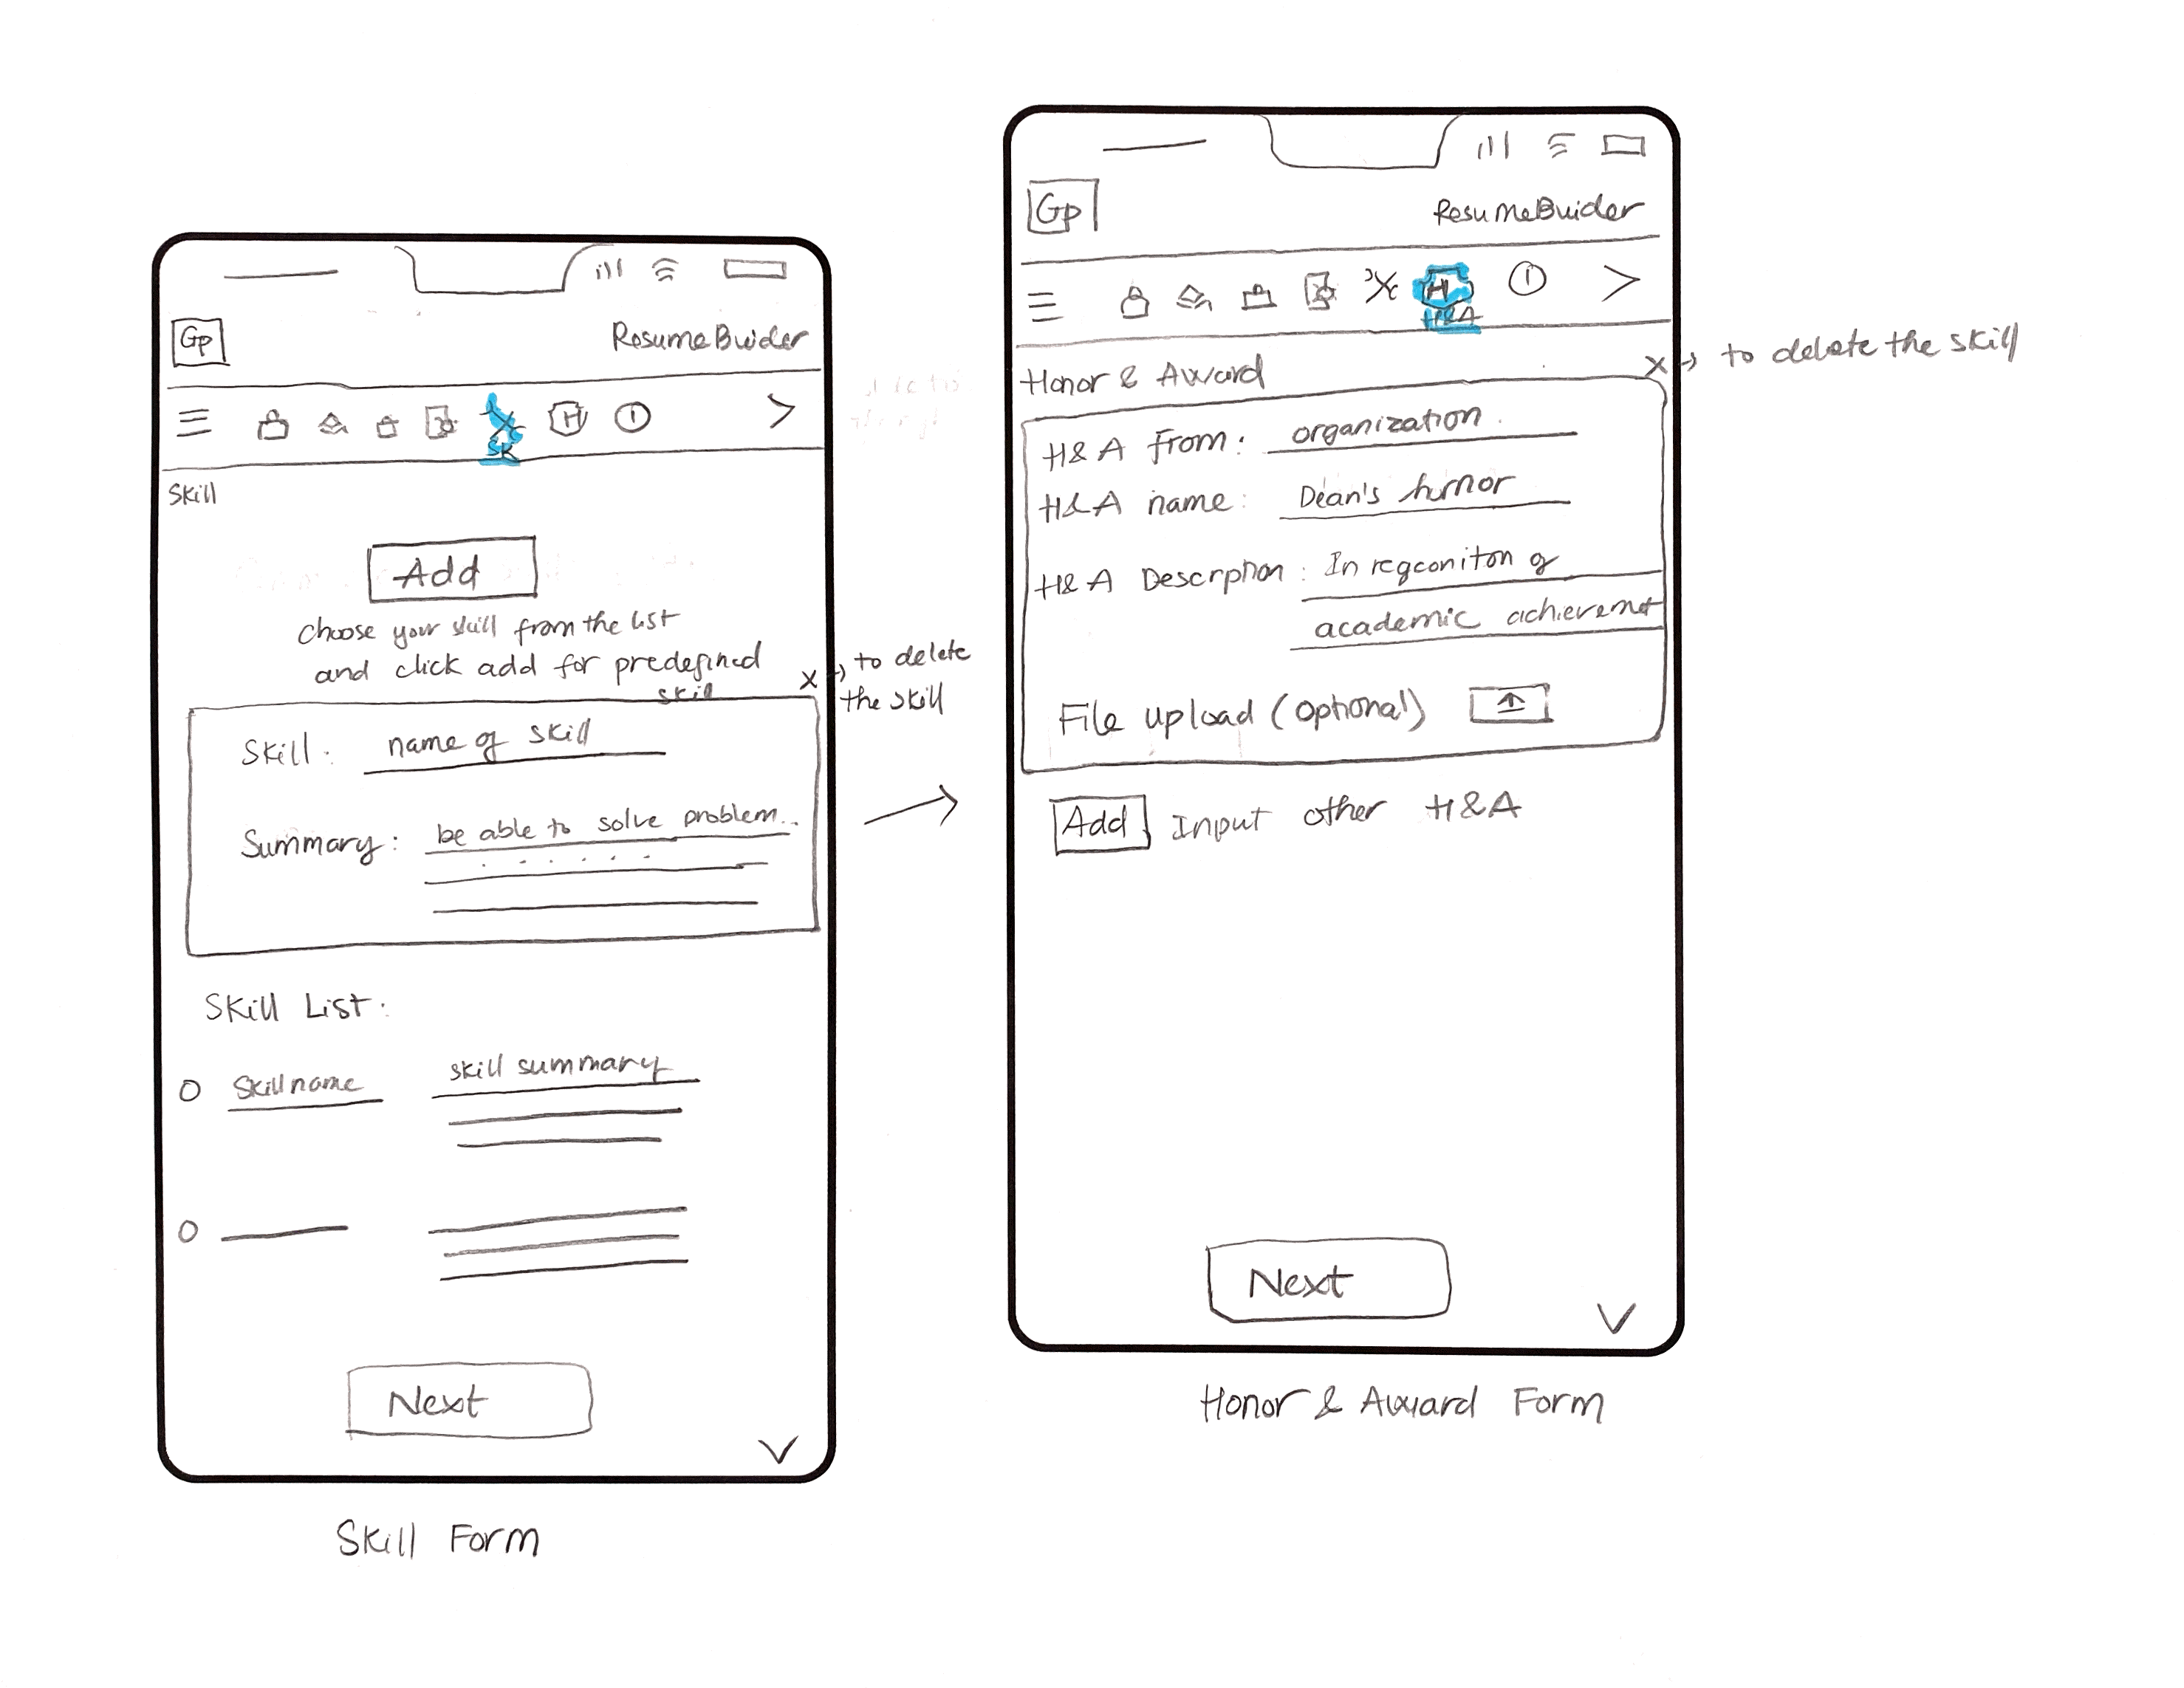 Gp
ResumeBuider
SK
Skill
Add
choose your skill from the list
and click add for predefined
skill
X → to delete
the skill
Skill: name of skill
Summary: be able to solve problem...
Skill List:
Skill name
skill summary
Next
Skill Form
Gp
ResumeBuider
H
H&A
Honor & Award
X → to delete the skill
H&A From: organization.
H&A name: Dean's hurnor
H&A Descrption: In regconiton of
academic achievemet
File upload (optional)
Add Input other H&A
Next
Honor & Award Form